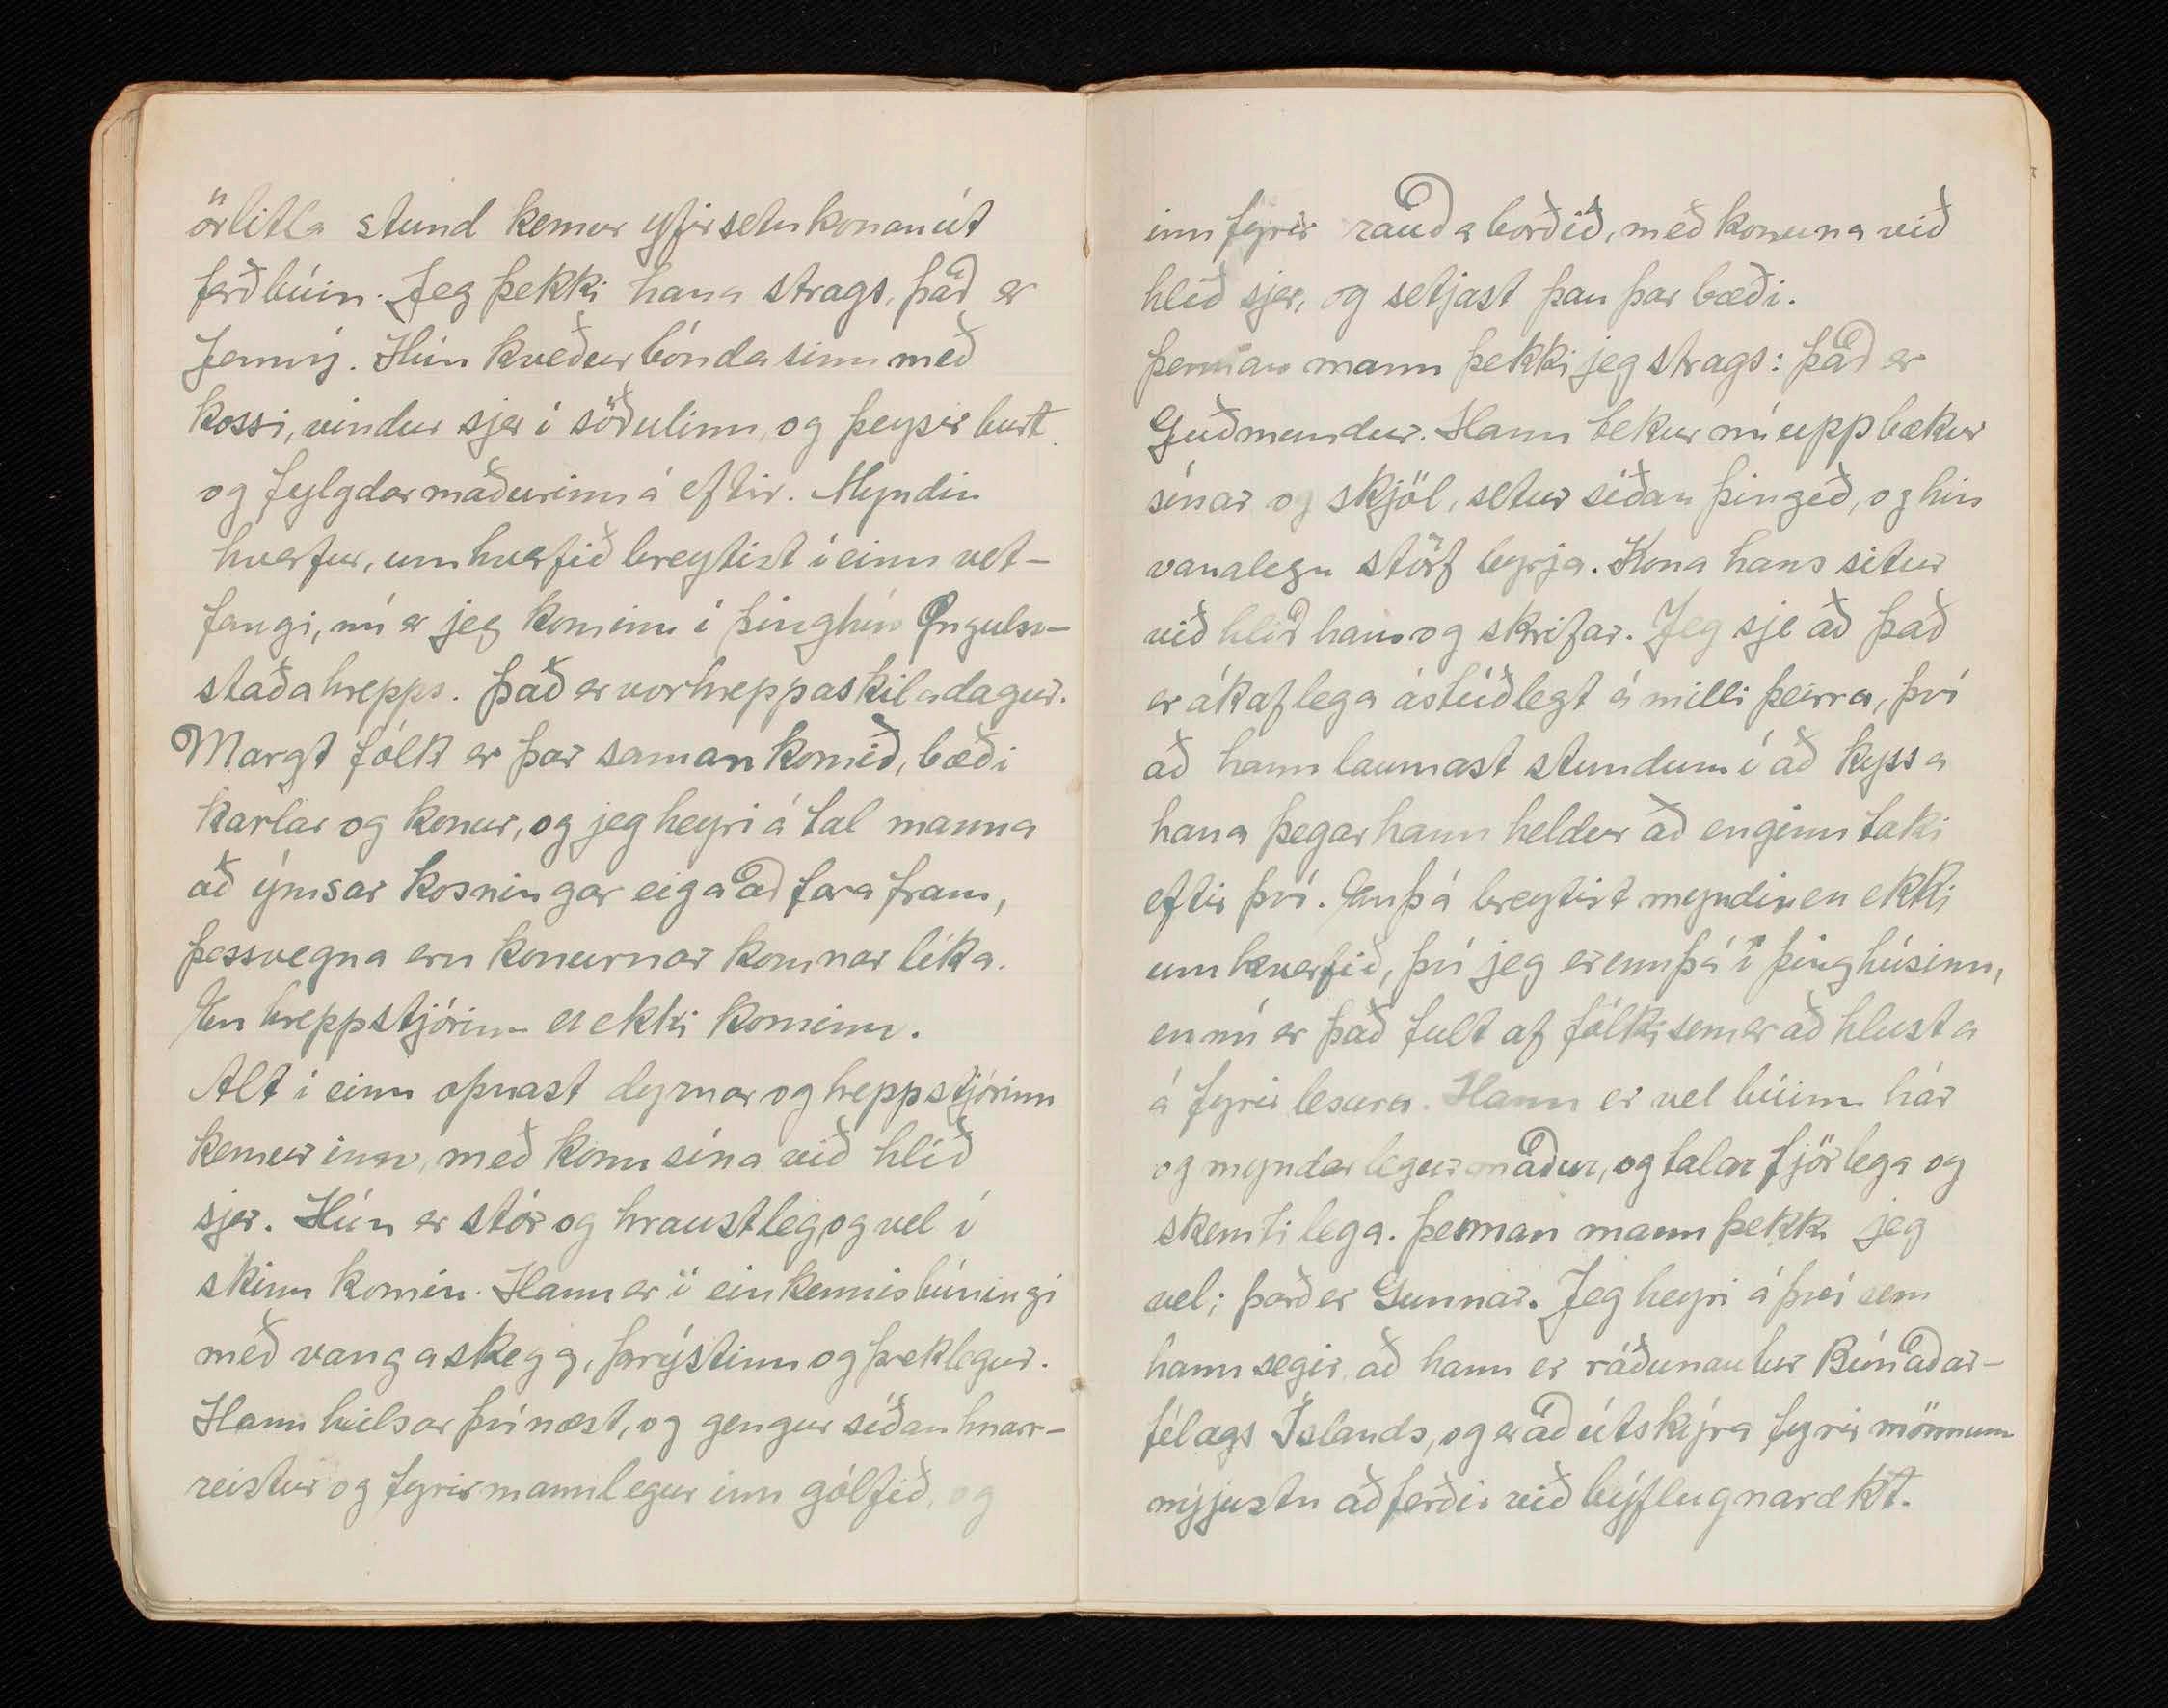 örlitla stund kemur yfirsetukonan út
ferðbúin. Jeg þekki hana strags, það er
Jenný. Hún kveður bónda sinn með
kossi, vindur sjer í söðulinn, og þeysir burt
og fylgdarmaðurinn á eftir. Myndin
hverfur, umhverfið breytist í einu vet-
fangi, nú er jeg kominn í þinghús Öngulss-
staðahrepps. Það er vorhreppaskiladagur.
Margt fólk er þar saman komið, bæði
karlar og konur, og jeg heyri á tal manna
að ýmsar kosningar eiga að fara fram,
þessvegna eru konurnar komnar líka.
En hreppstjórinn er ekki kominn.
Alt í einu opnast dyrnar og hreppstjórinn
kemur inn, með konu sína við hlið
sjer. Hún er stór og hraustleg, og vel í
skinn komin. Hann er í einkennisbúningi
með vangaskegg, þrýstinn og þreklegur.
Hann heilsar því næst, og gengur síðan hnarr-
reistur og fyrirmannlegur inn gólfið, og
inn fyrir rauða borðið, með konuna við
hlið sjer, og setjast þau þar bæði.
Þennan mann þekki jeg strags: það er
Guðmundur. Hann tekur nú upp bækur
sínar og skjöl, setur síðan þingið, og hin
vanalegu störf byrja. Kona hans situr
við hlið hans og skrifar. Jeg sje að það
er ákaflega ástúðlegt á milli þeirra, því
að hann laumast stundum í að kyssa
hana þegar hann heldur að enginn taki
eftir því. Enþá breytist myndin en ekki
umhverfið, því jeg er ennþá í þinghúsinu,
en nú er það fult af fólki sem er að hlusta
á fyrirlesara. Hann er vel búinn hár
og myndarlegur maður, og talar fjörlega og
skemtilega. Þennan mann þekki jeg
vel; það er Gunnar. Jeg heyri á því sem
hann segir að hann er ráðunautur Búnaðar-
félags Íslands, og er að útskýra fyrir mönnum
nýjustu aðferðir við býflugnarækt.